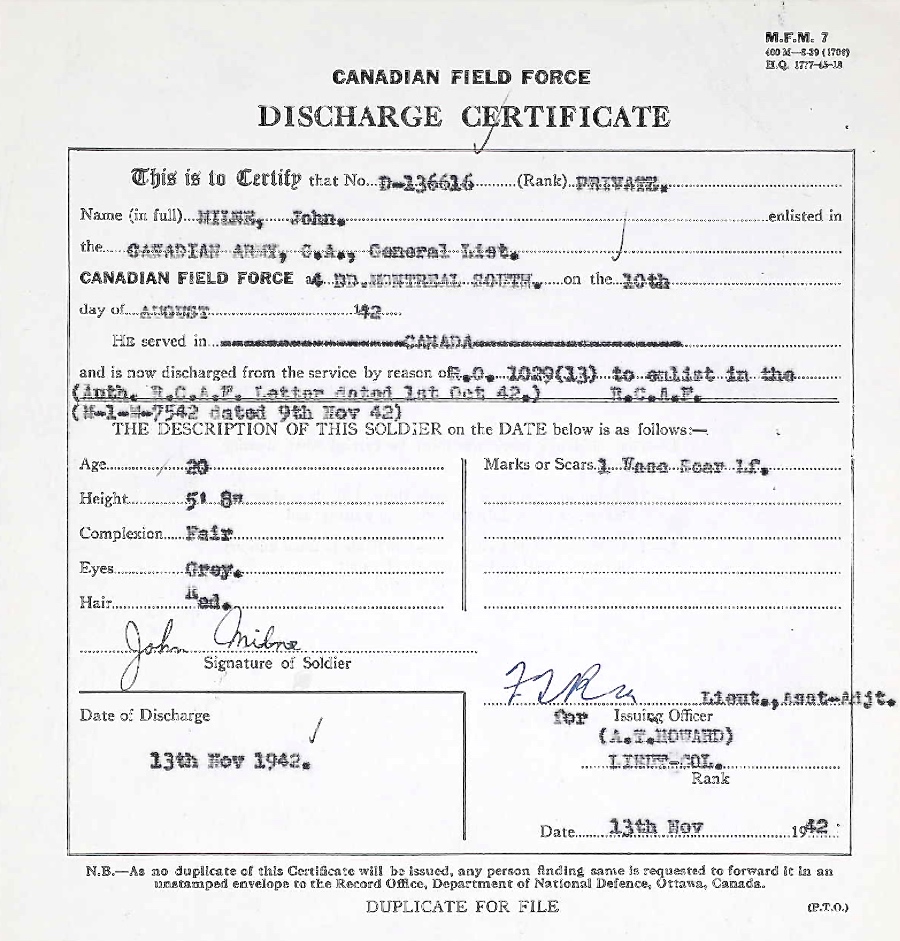 M.F.M. 7
400 M—8-39 (1708)
H.Q. 1777-45-18
CANADIAN FIELD FORCE
DISCHARGE CERTIFICATE
This is to Certify that No. D-136616 (Rank) PRIVATE.
Name (in full) MILNE, John. enlisted in
the CANADIAN ARMY, C.A., General List.
CANADIAN FIELD FORCE at 4 DD.MONTREAL SOUTH. on the 10th
day of AUGUST 142
HE served in CANADA
and is now discharged from the service by reason of R.O. 1029(13) to enlist in the
(Auth. R.C.A.F. Letter dated 1st Oct 42.) R.C.A.F.
(M-1-M-7542 dated 9th Nov 42)
THE DESCRIPTION OF THIS SOLDIER on the DATE below is as follows:—
Age 20
Height 5' 8"
Complexion Fair
Eyes Grey.
Hair Red.
Marks or Scars 1 Vacc Scar Lf.
John Milne
Signature of Soldier
Date of Discharge
13th Nov 1942.
Lieut.,Asst-Adjt.
for Issuing Officer
(A.T.HOWARD)
LIEUT-COL.
Rank
Date 13th Nov 1942
N.B.—As no duplicate of this Certificate will be issued, any person finding same is requested to forward it in an
unstamped envelope to the Record Office, Department of National Defence, Ottawa, Canada.
DUPLICATE FOR FILE
(P.T.O.)